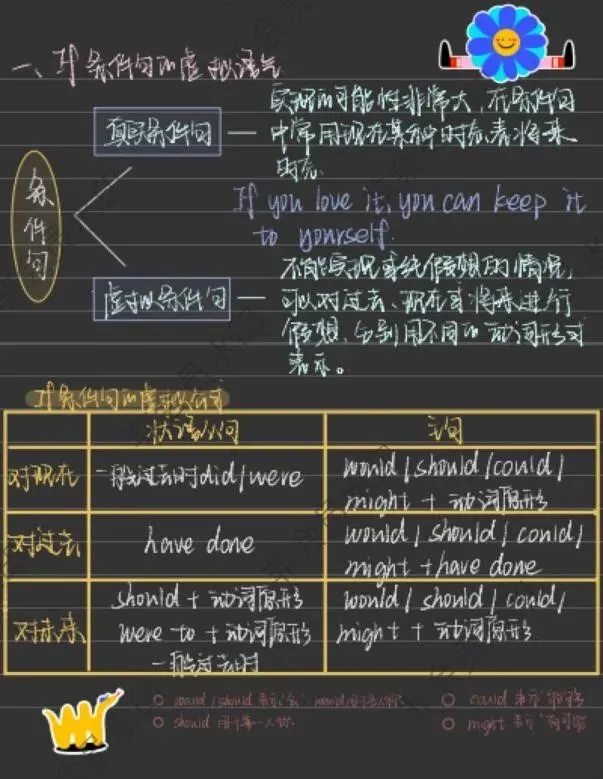 一、If条件句的虚拟语气
真实条件句
实现的可能性非常大，在条件句
中常用现在某种时态表将来
时态
If you love it, you can keep it
to yourself.
条件句
虚拟条件句
不能实现或纯假想的情况，
可以对过去、现在或将来进行
假想，分别用不同的动词形式
表示。
If条件句的虚拟公式
状语从句 主句
对现在 一般过去时did/were would/should/could/
might + 动词原形
对过去 have done would/should/could/
might + have done
对未来 should + 动词原形 would/should/could/
were to + 动词原形 might + 动词原形
一般过去时
would/should 表示“会” would用于各人称 could 表示“能够”
should 用于第一人称 might 表示“有可能”